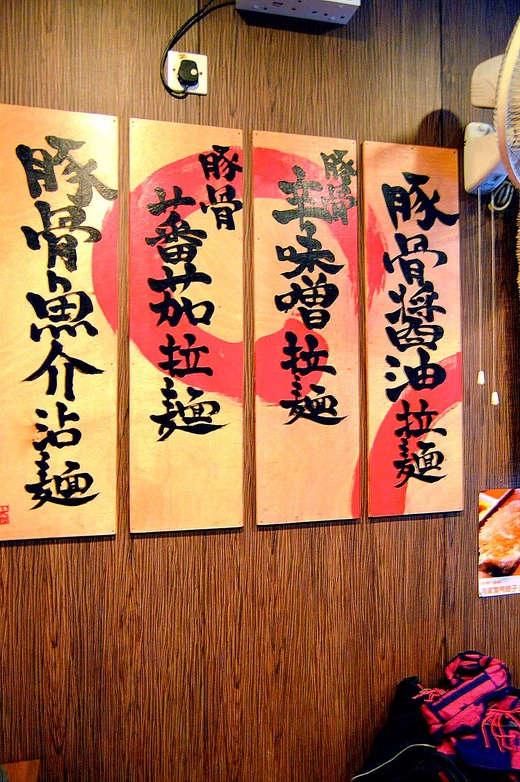 豚骨醬油拉麵
豚骨
辛味噌拉麵
豚骨
蕃茄拉麵
豚骨魚介沾麵